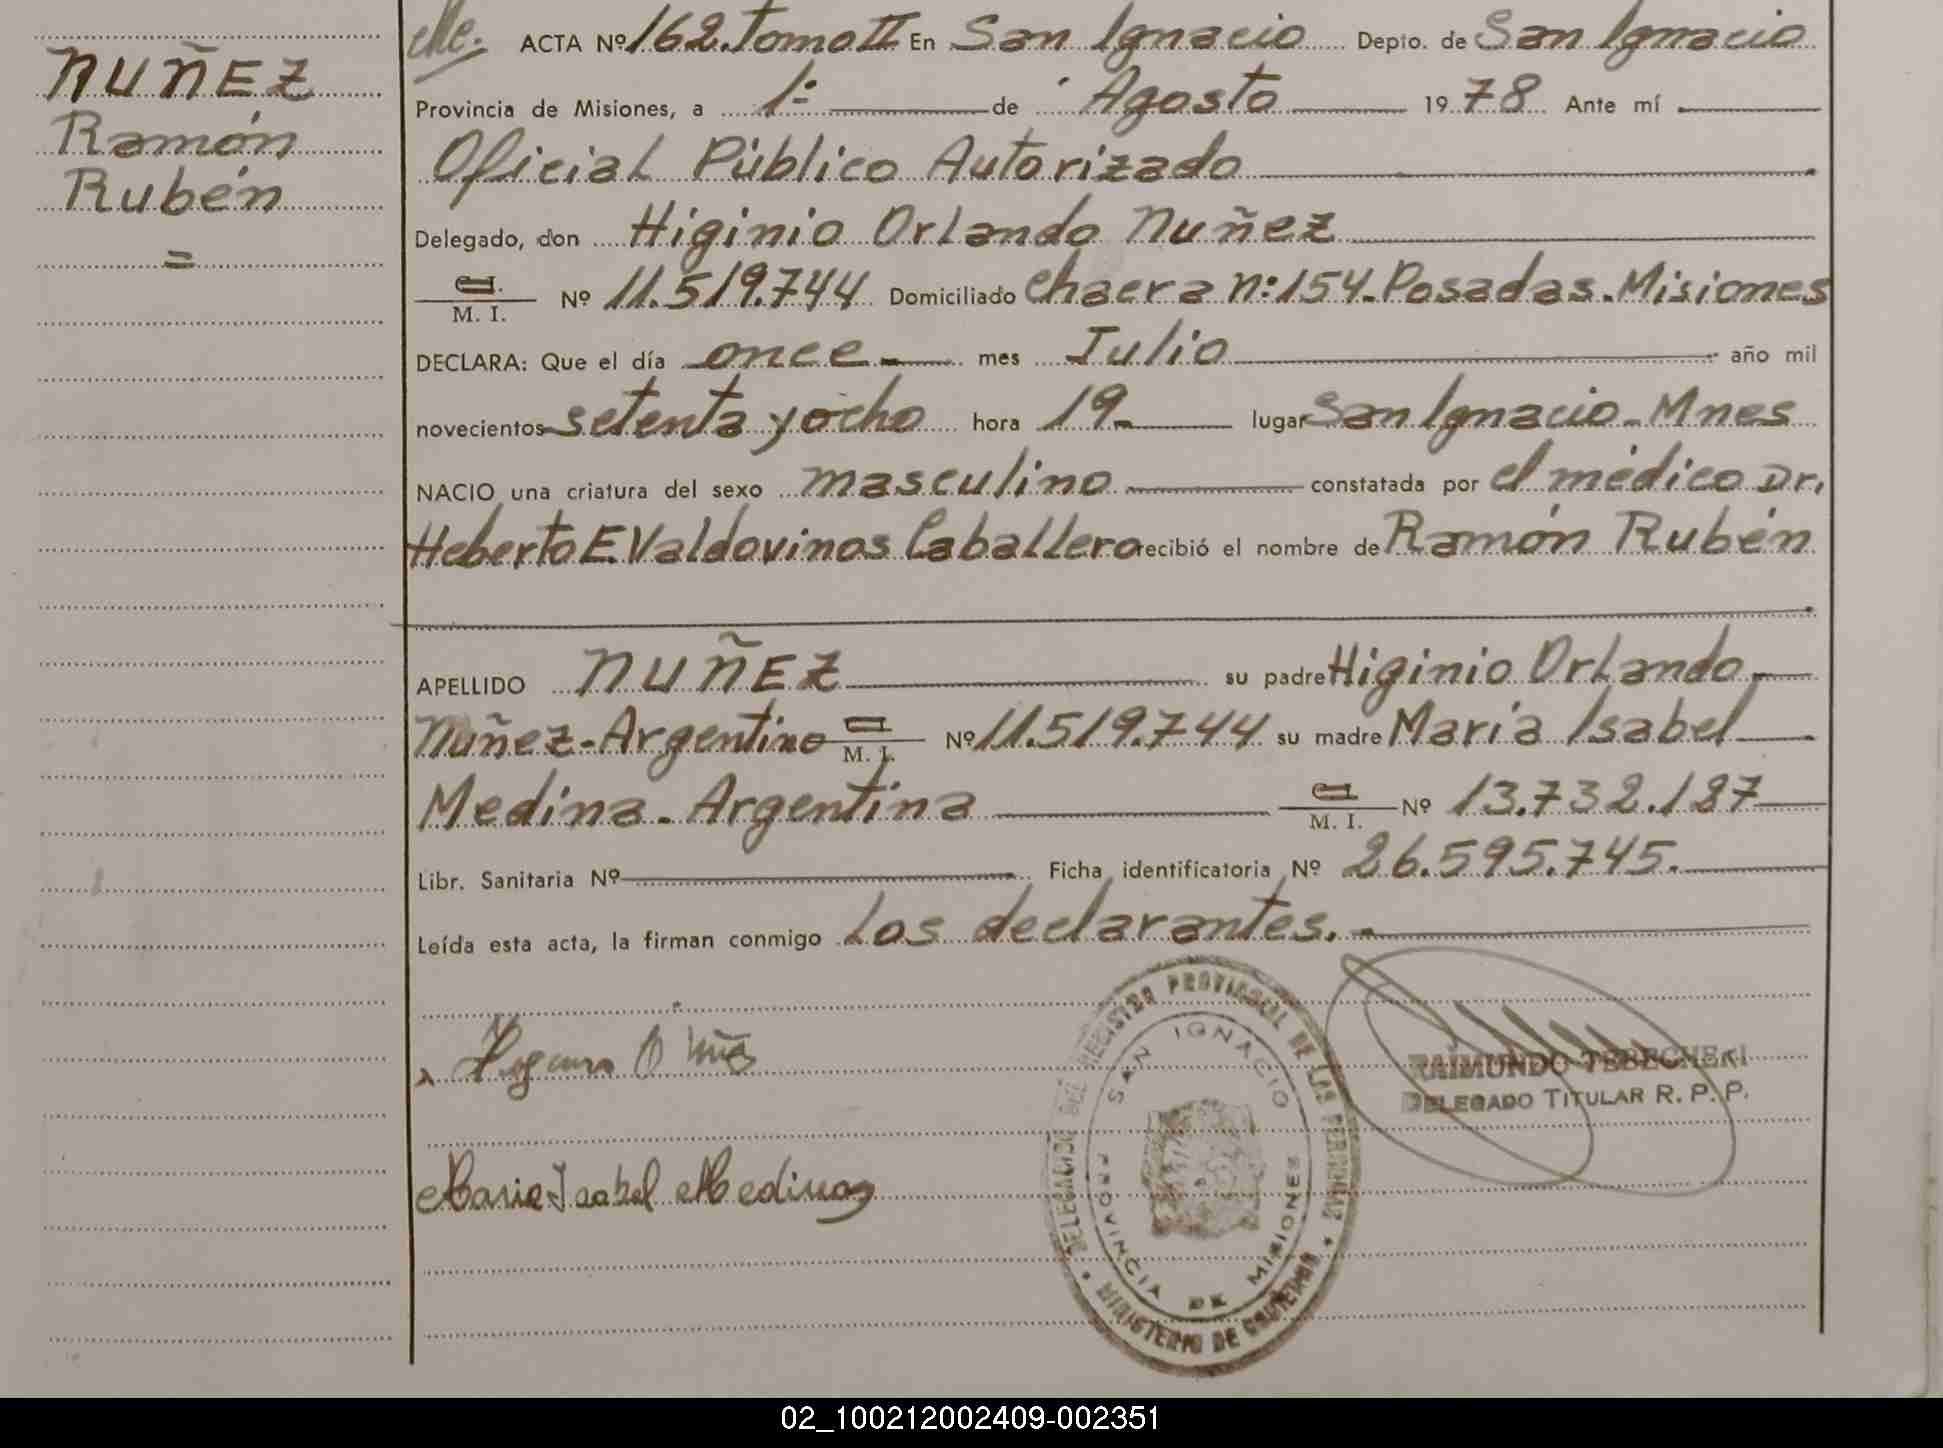 NUÑEZ
Ramón
Rubén
=
ACTA Nº 162. Tomo II En San Ignacio Depto. de San Ignacio
Provincia de Misiones, a 1º de Agosto 1978 Ante mí
Oficial Público Autorizado
Delegado, don Higinio Orlando Nuñez
M. I. Nº 11.519.744 Domiciliado Chacra n:154-Posadas-Misiones
DECLARA: Que el día once mes Julio año mil
novecientos setenta y ocho hora 19 lugar San Ignacio-Mnes
NACIO una criatura del sexo masculino constatada por el médico Dr.
Heberto E. Valdovinos Caballero recibió el nombre de Ramón Rubén
APELLIDO NUÑEZ su padre Higinio Orlando
Nuñez-Argentino M. I. Nº 11.519.744 su madre María Isabel
Medina-Argentina M. I. Nº 13.732.187
Libr. Sanitaria Nº Ficha identificatoria Nº 26.595.745.
Leída esta acta, la firman conmigo los declarantes.
DELEGACION DEL REGISTRO PROVINCIAL DE LAS PERSONAS
SAN IGNACIO
PROVINCIA DE MISIONES
MINISTERIO DE GOBIERNO
RAIMUNDO
DELEGADO TITULAR R. P. P.
Maria Isabel Medina
02_100212002409-002351